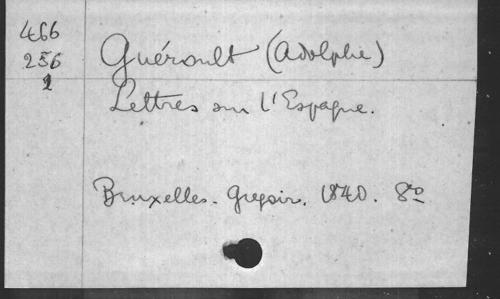 466
256
2
Guéroult (Adolphe)
Lettres sur l'Espagne.
Bruxelles. Gregoir. 1840. 8º